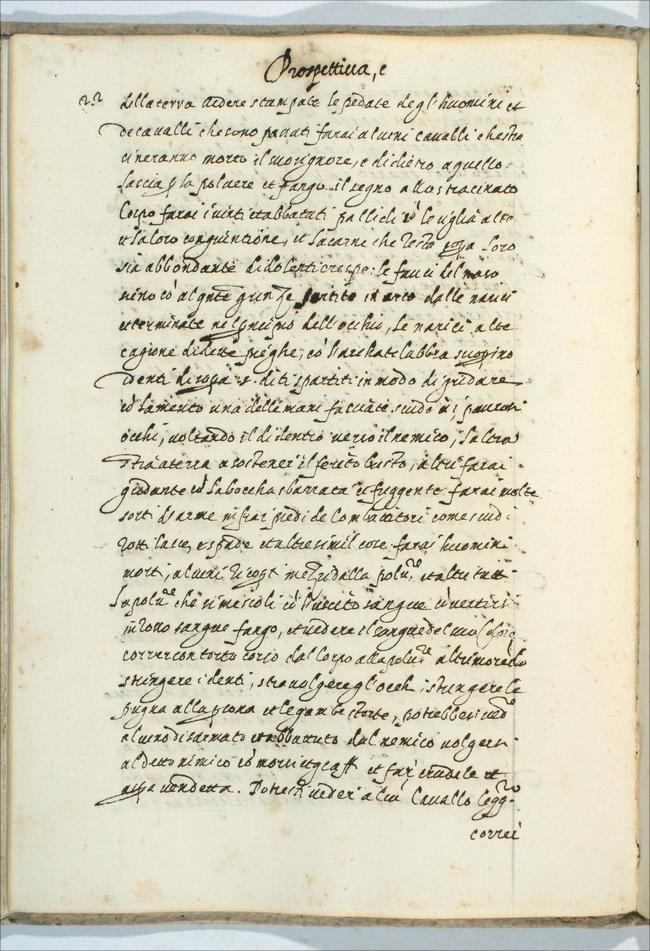 Prospettiua, e
22 della terra uedere stampate le pedate degl'huomini et
de caualli che sono passati farai alcuni caualli che stra
cineranno morto il suo signore, e di dietro a quello
lascia p la poluere et fango il segno allo stracinato
Corpo farai i uinti et abbatuti pallidi cõ le ciglia alte
et la loro congiuntione, et la carne che resta sopa loro
sia abbondante di dolenti crespe: le fauci del naso
sieno cõ alqnte grinze partite in arco dalle narici
et terminate nel pncipio dell'occhio, le narici alte
cagione di dette pieghe, cõ l'archate labbra scopino
i denti di sopa i denti spartiti in modo di gridare
cõ lamento una delle mani facciate scudo a i paurosi
occhi, uoltando il di dentro uerso il nemico, l'altra
stia a terra a sostenere il ferito busto, altri farai
gridante cõ la boccha sbarrata et fuggente farai molte
sorti d'arme infra i piedi de Combattitori come scudi
rotti lance, espade et altre simil cose farai huomini
morti, alcuni ricopti mezi dalla polue et altri tutti
la polue che si mescoli cõ l'uscito sangue cõuertirsi
in rosso sangue fango, et uedere il sangue del suo Colore
correr con torto corso dal Corpo alla polue altri morẽdo
stringere i denti, strauolgere gl'occhi, stringere le
pugna alla psona et le gambe storte, potrebbesi ued
alcuno disarmato et abbattuto dal nemico uolgersi
al detto nimico cõ morsi et graffi et far crudele et
aspa uendetta. Potresti ueder alcũ Cauallo legg.ro
correr